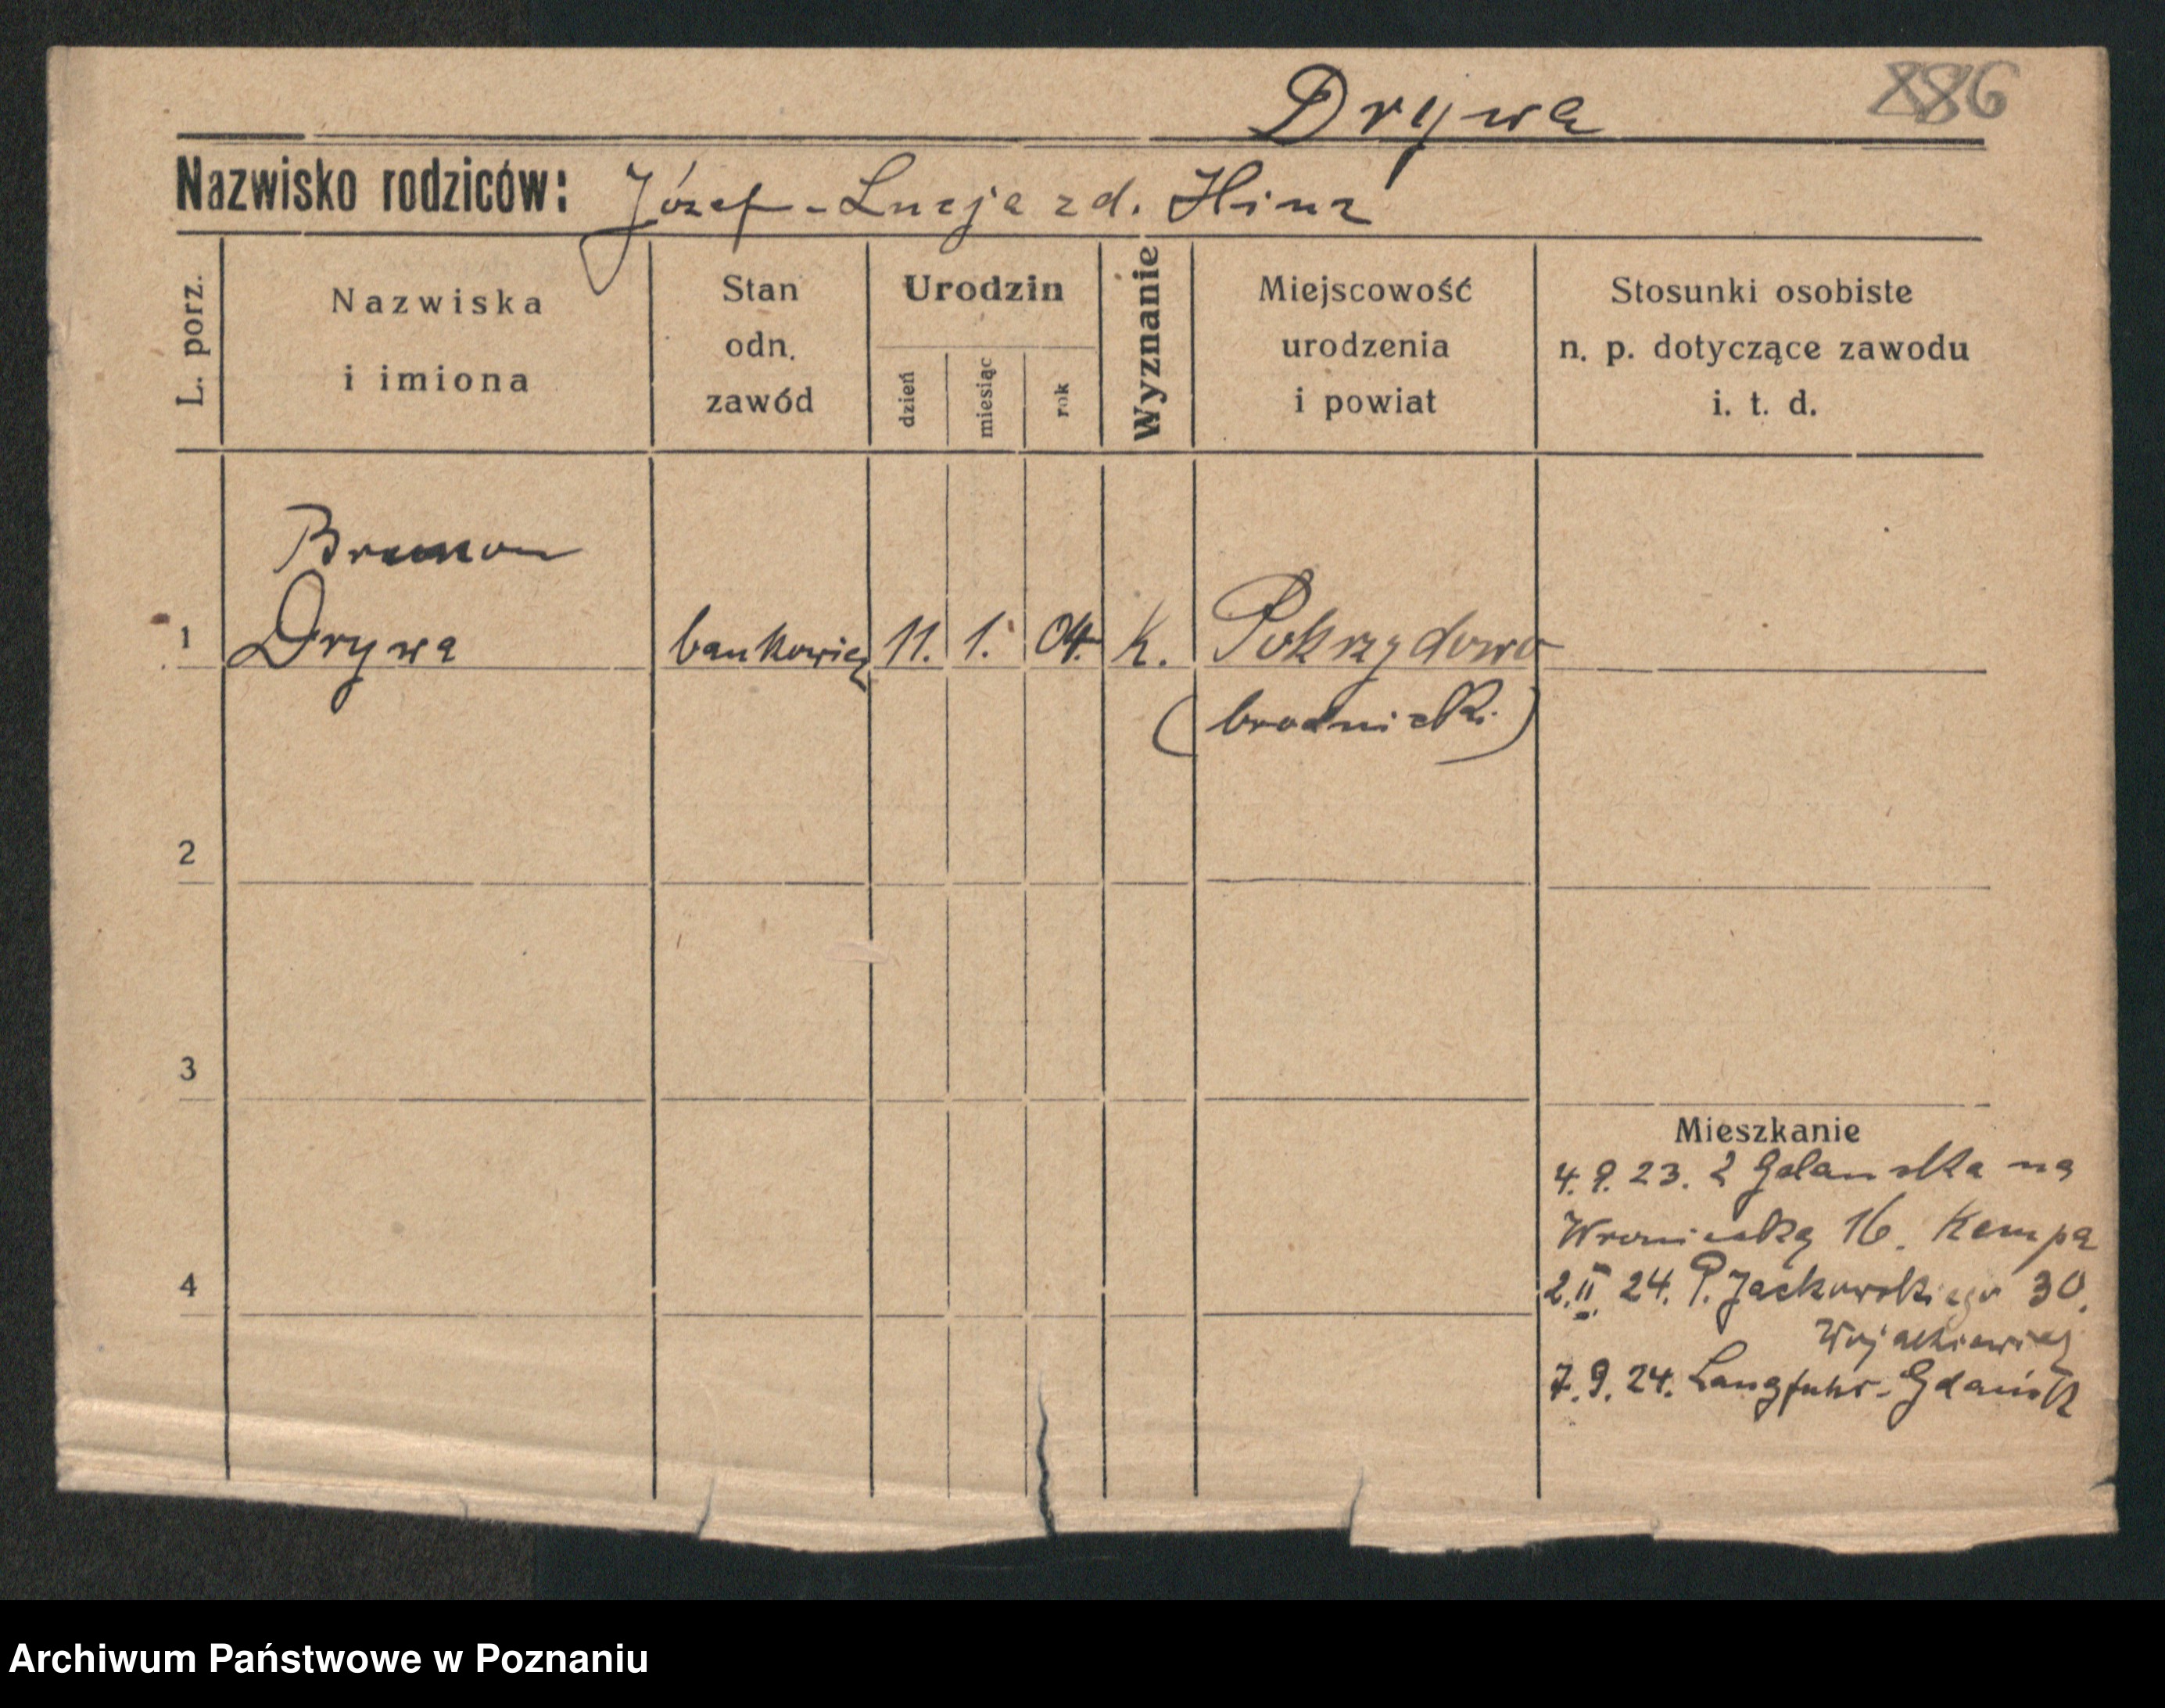 Drywa
886
Nazwisko rodziców: Józef - Lucja zd. Hinz
L. porz.
Nazwiska
i imiona
Stan
odn.
zawód
Urodzin
dzień
miesiąc
rok
Wyznanie
Miejscowość
urodzenia
i powiat
Stosunki osobiste
n. p. dotyczące zawodu
i. t. d.
Brunon
1 Drywa bankowiec 11. 1. 04. k. Pokrzydowo
(brodnicki)
2
3
Mieszkanie
4. 9. 23. z Gdańska na
Wroniecką 16. Kempa
4
2.II. 24. P. Jackowskiego 30.
7. 9. 24. Langfuhr - Gdańsk
Archiwum Państwowe w Poznaniu